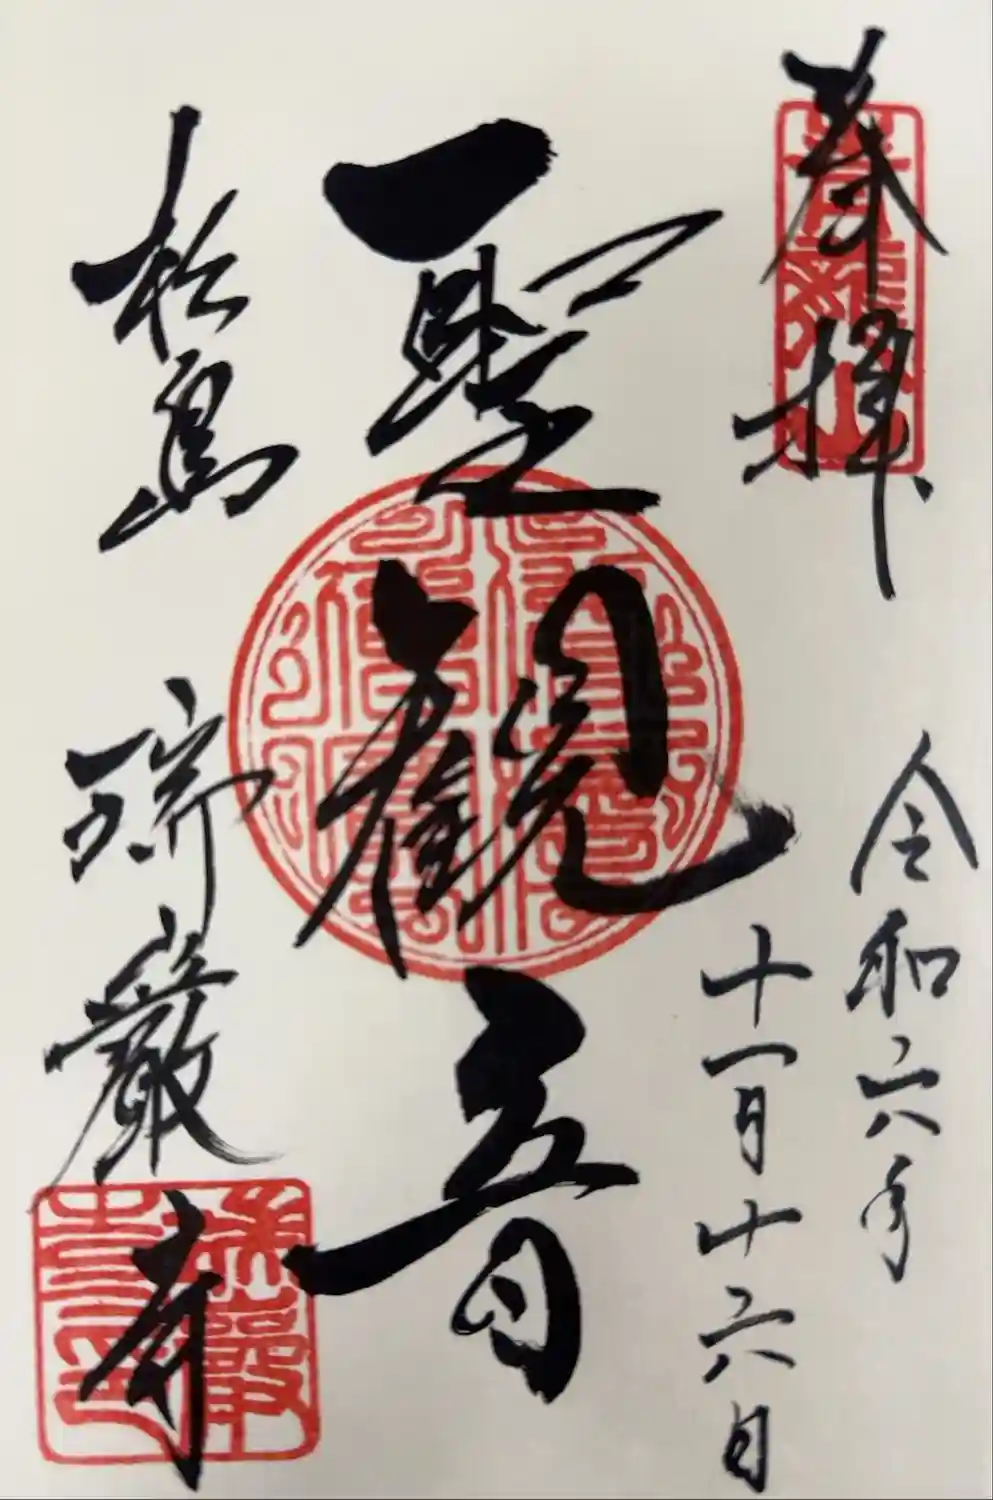 奉拝
令和六年
十一月十六日
聖観音
松島
瑞巌寺
青龍山